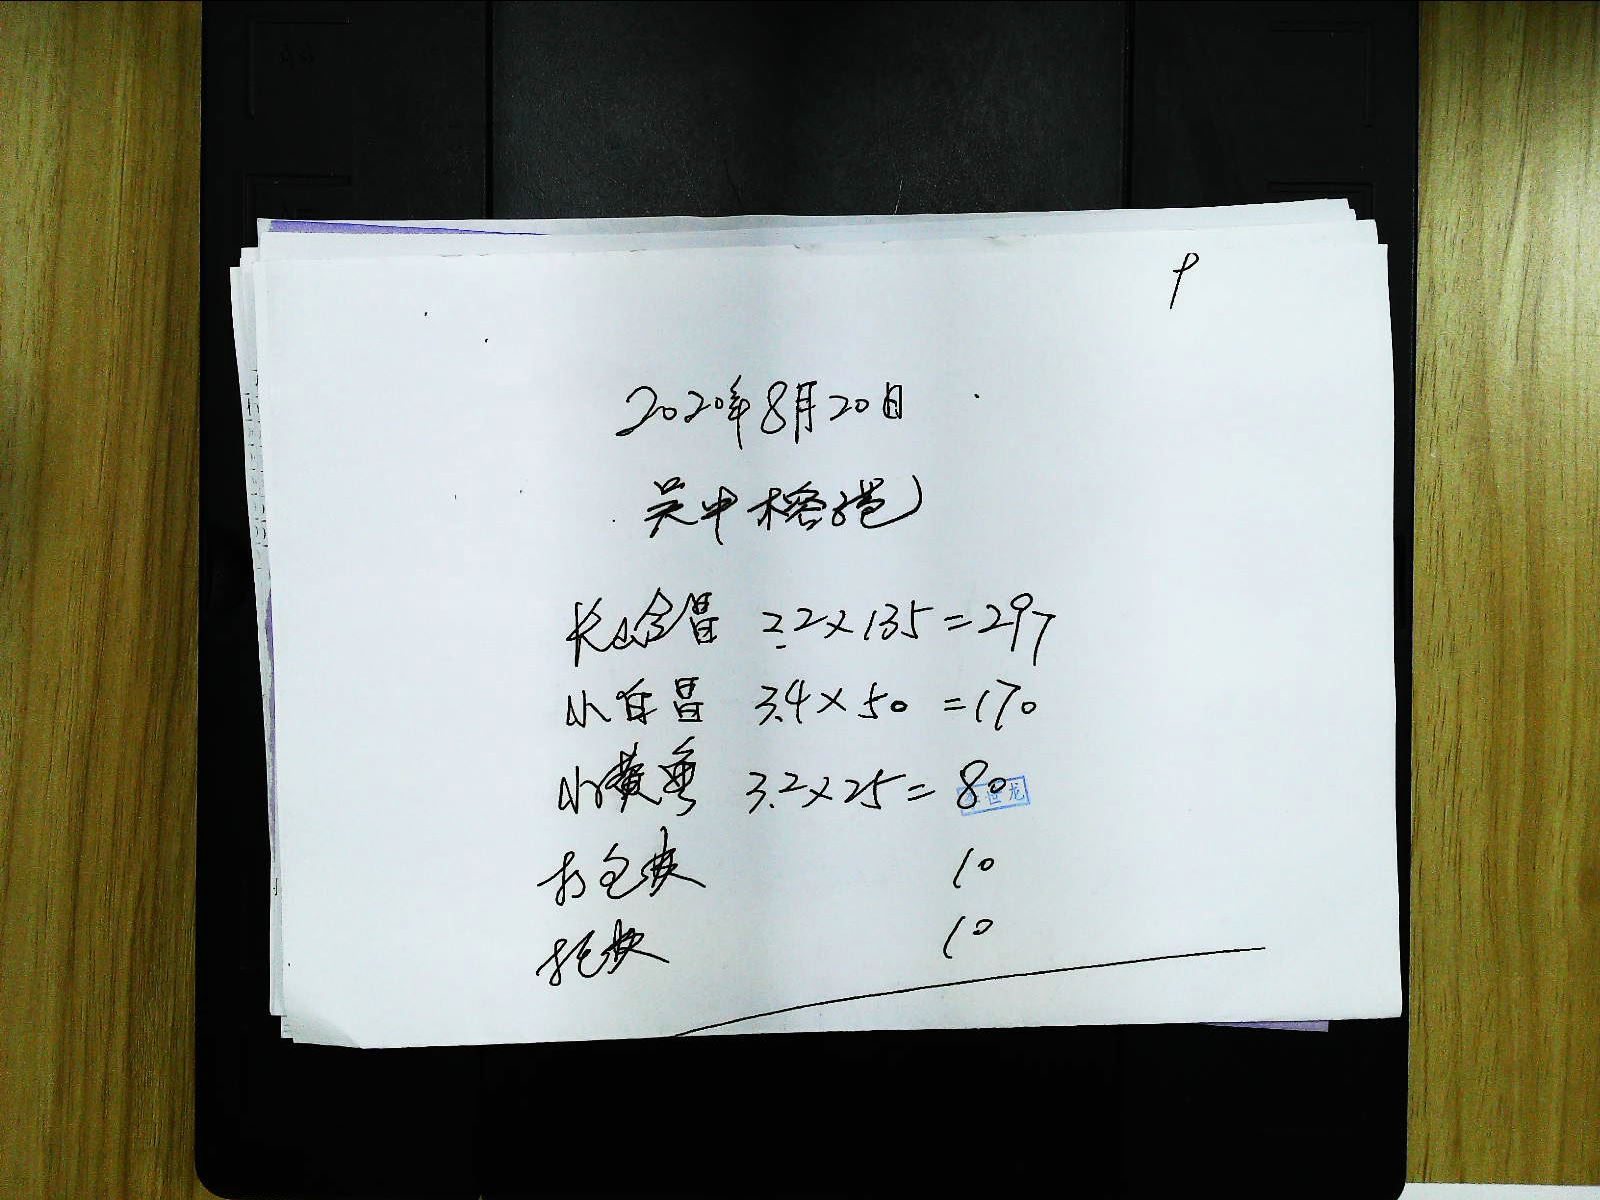 9
2020年8月20日
吴中榕港
长山金昌 2.2×135=297
小白昌 3.4×50=170
小黄鱼 3.2×25=80
世龙
打包费 10
托费 10